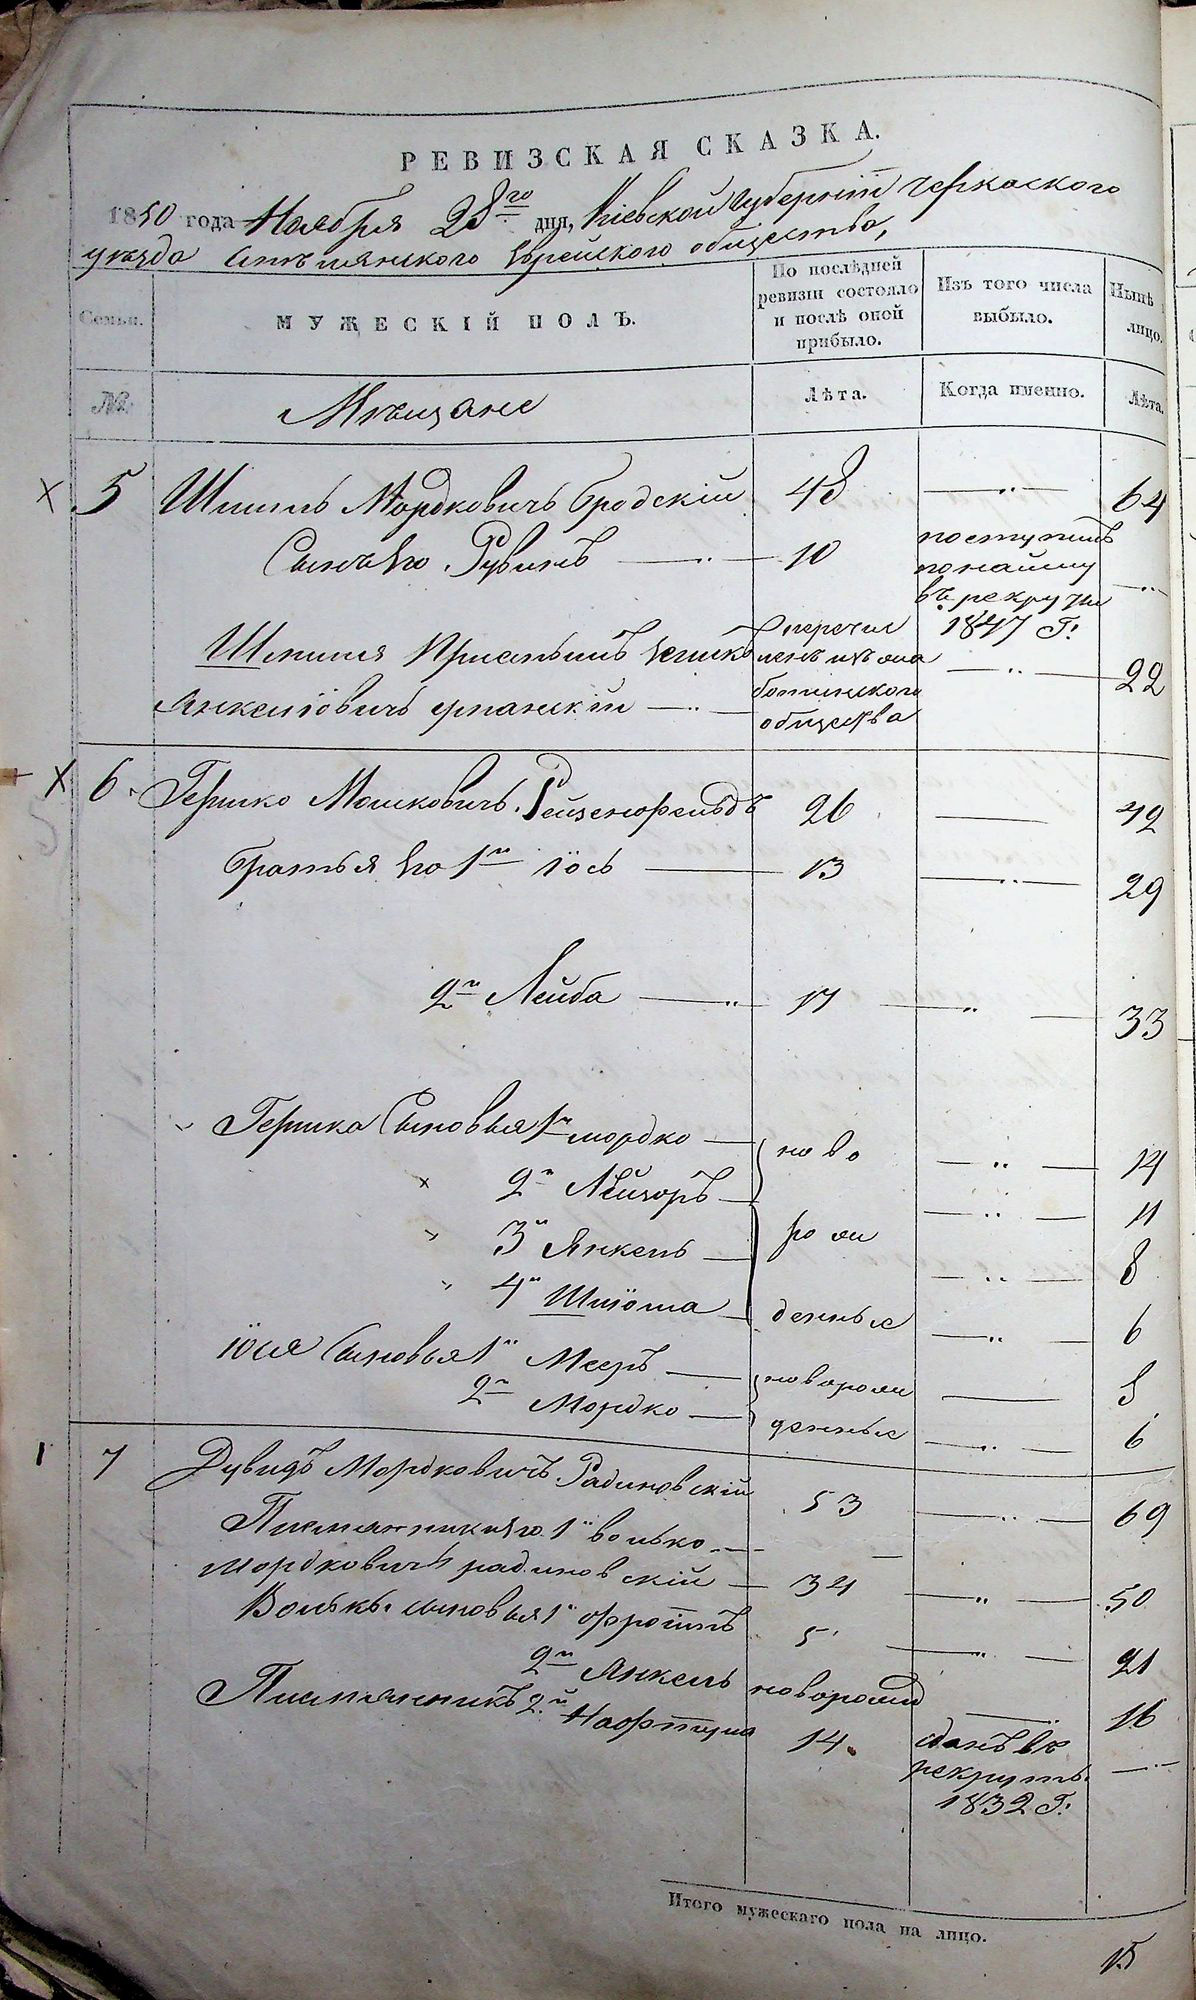 РЕВИЗСКАЯ СКАЗКА.
1850 года Ноября 28го дня, Кіевской Губерніи Черкаского
уезда Еврейского общества,
Семьи.
МУЖЕСКІЙ ПОЛЪ.
По послѣдней ревизіи состояло и послѣ оной прибыло.
Изъ того числа выбыло.
Нынѣ лицо.
№
Мѣщане
Лѣта.
Когда именно.
Лѣта.
5 Мордковичъ Бродскій 48 64
Сынъ Его Рувинъ 10 поступилъ
по найму
въ рекруты
1847 Г.
перечис
ленъ изъ
общества
22
6 Гершко Мошковичъ 26 42
братья Его 1й Іось 13 29
2й Лейба 17 33
Гершка Сыновья 1й Мордко ново 14
2й Лейзоръ 11
3й Янкель рож 8
4й Шлїома денные 6
Іося Сыновья 1й Мееръ новорож
2й Мордко денные 6
7 Дувидъ Мордковичъ Радиновскій 53 69
Племянники Его 1й Волько
Мордковичъ Радиновскій 34 50
Волька сыновья 1й Фроимъ 5 21
2й Янкель новорожд 16
Племянникъ 2й Нафтула 14 сданъ въ
рекруты
1832 Г.
Итого мужескаго пола на лицо.
15